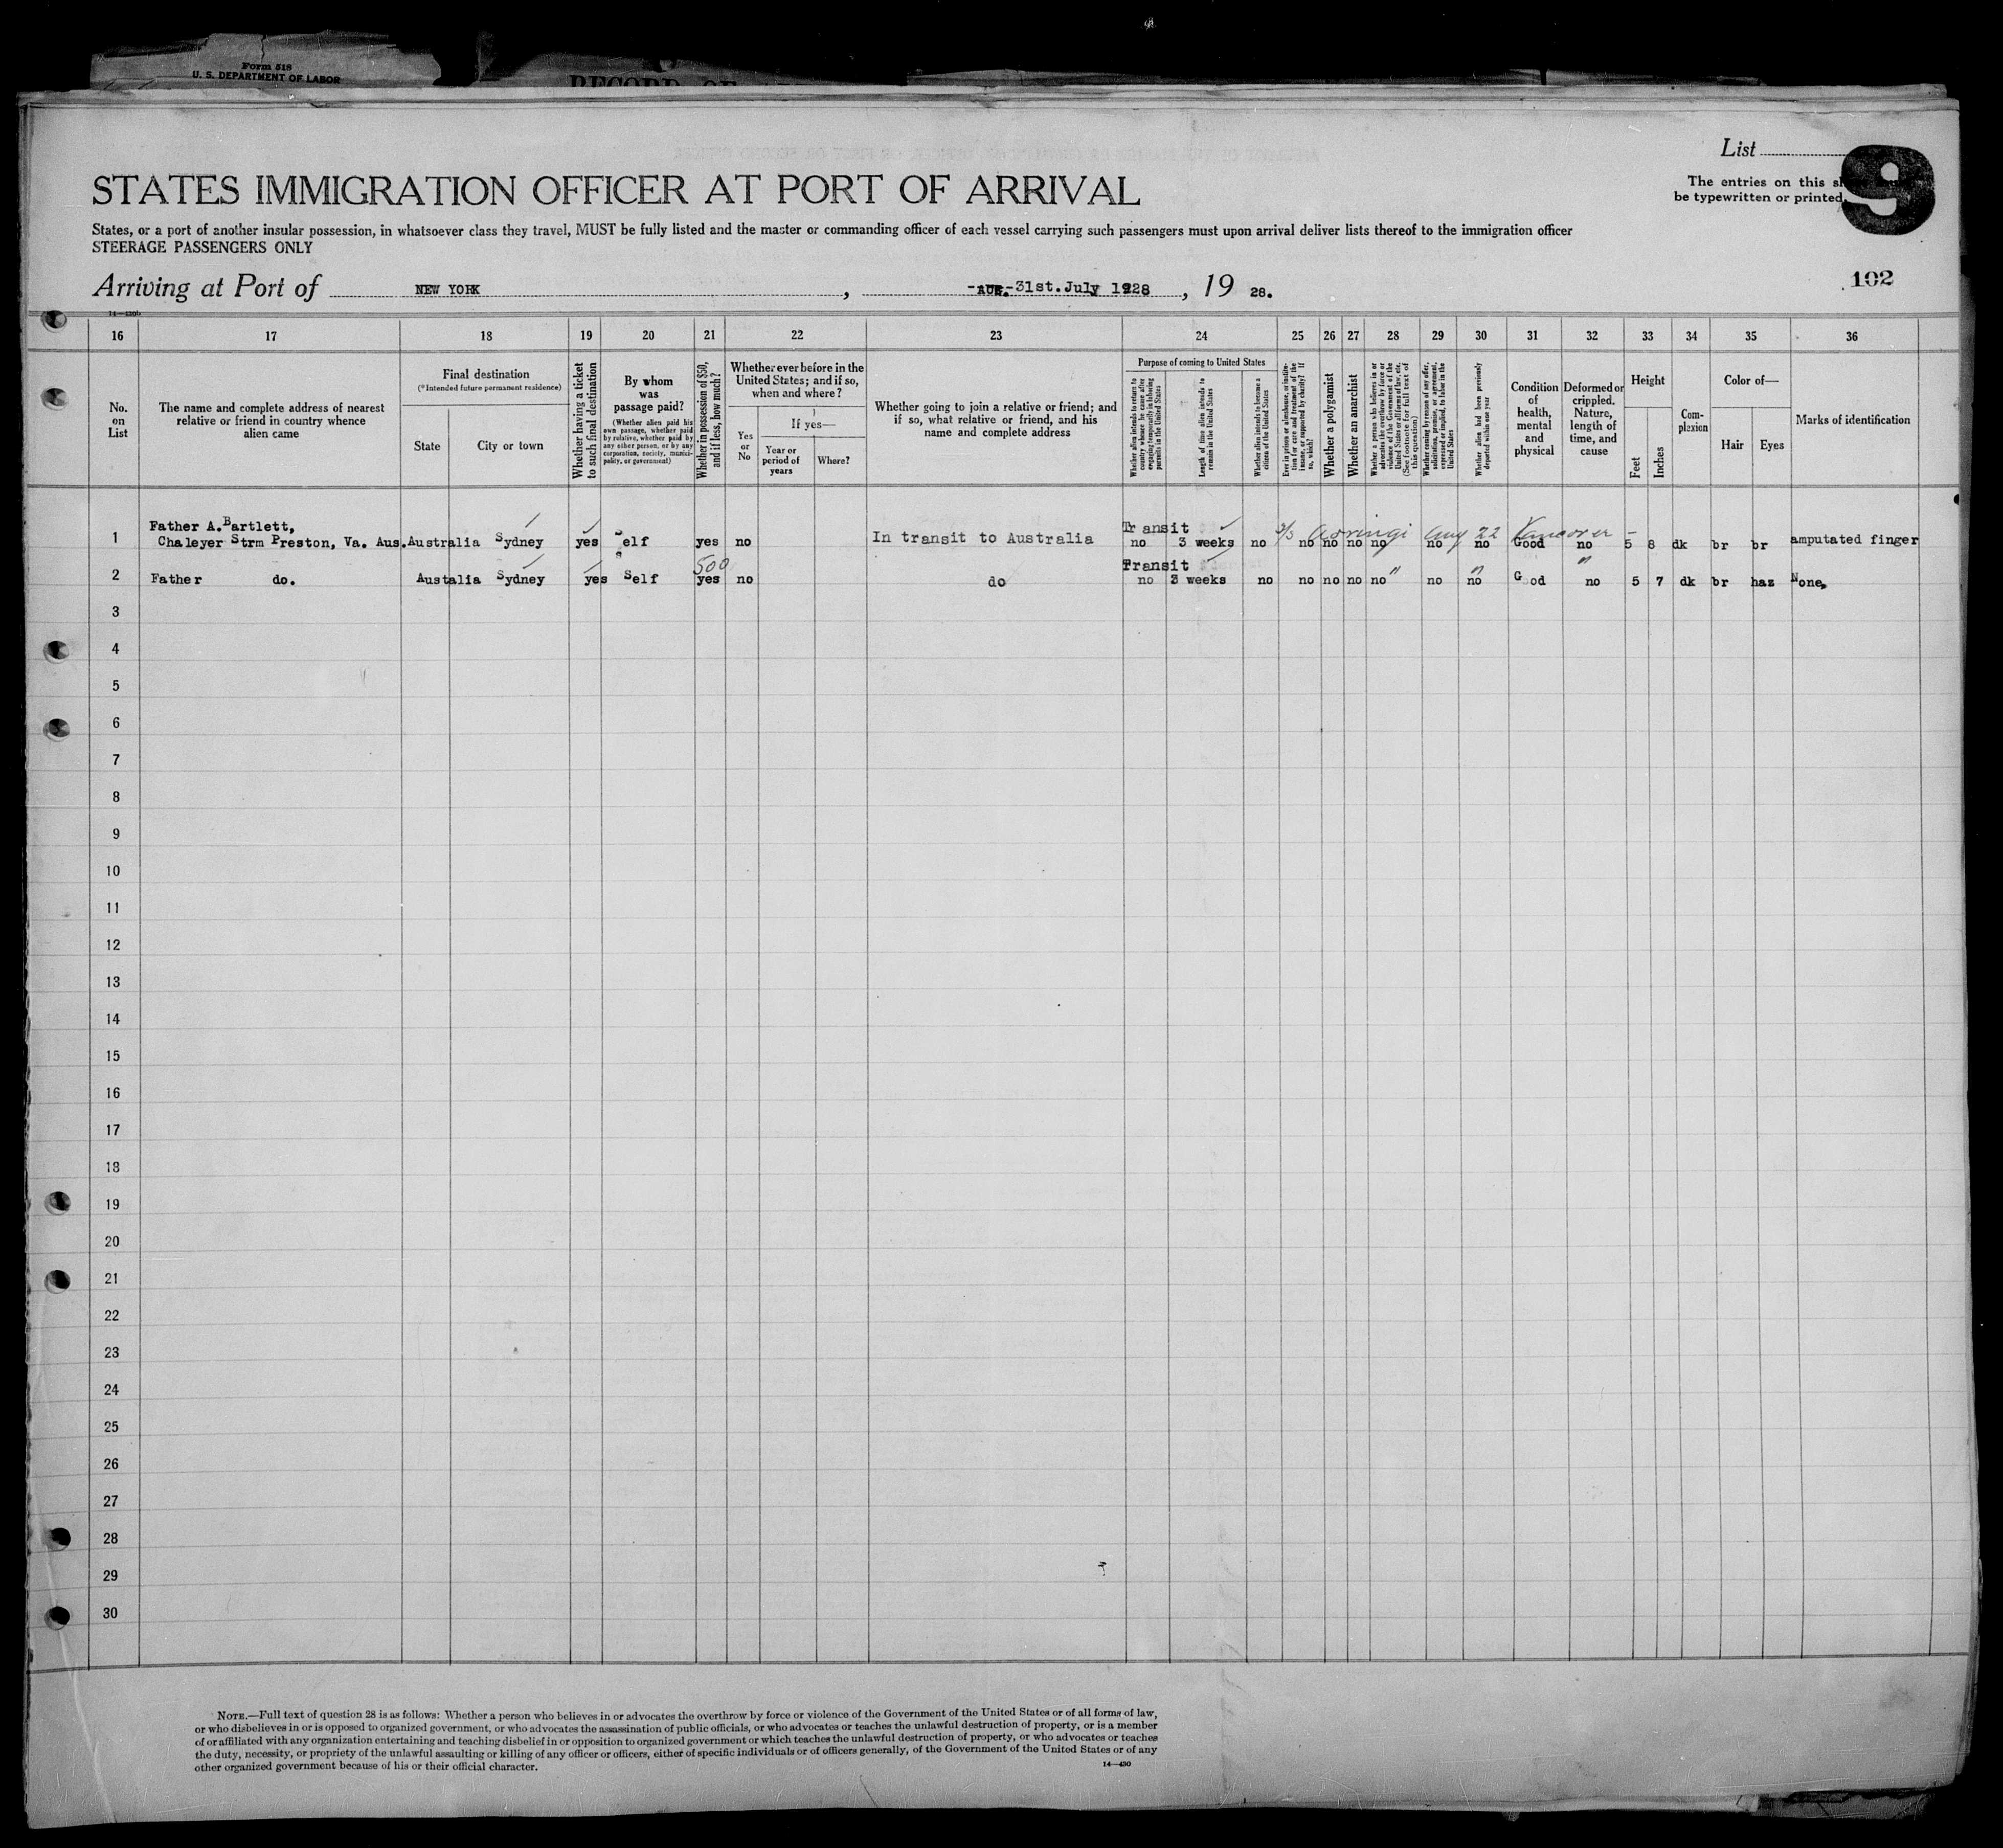 Form 518
U. S. DEPARTMENT OF LABOR
RECORD OF
List
9
The entries on this
be typewritten or printed
STATES IMMIGRATION OFFICER AT PORT OF ARRIVAL
States, or a port of another insular possession, in whatsoever class they travel, MUST be fully listed and the master or commanding officer of each vessel carrying such passengers must upon arrival deliver lists thereof to the immigration officer
STEERAGE PASSENGERS ONLY
102
Arriving at Port of NEW YORK, -AUG.-31st. July 1928, 19 28.
14—430
16 17 18 19 20 21 22 23 24 25 26 27 28 29 30 31 32 33 34 35 36
No. on List
The name and complete address of nearest relative or friend in country whence alien came
Final destination
(*Intended future permanent residence)
State
City or town
Whether having a ticket to such final destination
By whom was passage paid?
(Whether alien paid his own passage, whether paid by relative, whether paid by any other person, or by any corporation, society, munici-pality, or government)
Whether in possession of $50, and if less, how much?
Whether ever before in the United States; and if so, when and where?
Yes or No
If yes—
Year or period of years
Where?
Whether going to join a relative or friend; and if so, what relative or friend, and his name and complete address
Purpose of coming to United States
Whether alien intends to return to country whence he came after engaging temporarily in laboring pursuits in the United States
Length of time alien intends to remain in the United States
Whether alien intends to become a citizen of the United States
Ever in prison or almshouse, or institu-tion for care and treatment of the insane, or supported by charity? If so, which?
Whether a polygamist
Whether an anarchist
Whether a person who believes in or advocates the overthrow by force or violence of the Government of the United States or all forms of law, etc. (See footnote for full text of this question)
Whether coming by reason of any offer, solicitation, promise, or agreement, expressed or implied, to labor in the United States
Whether alien had been previously deported within one year
Condition of health, mental and physical
Deformed or crippled. Nature, length of time, and cause
Height
Feet
Inches
Com-plexion
Color of—
Hair
Eyes
Marks of identification
Father A. Bartlett, Transit Aorangi Aug 22 Vancover -
1 Chaleyer Strm Preston, Va. Aus. Australia Sydney yes Self yes no In transit to Australia no 3 weeks no no no no no no no Good no 5 8 dk br br amputated finger
500 Transit " " "
2 Father do. Austalia Sydney yes Self yes no do no 3 weeks no no no no no no no Good no 5 7 dk br haz None.
3
4
5
6
7
8
9
10
11
12
13
14
15
16
17
18
19
20
21
22
23
24
25
26
27
28
29
30
NOTE.—Full text of question 28 is as follows: Whether a person who believes in or advocates the overthrow by force or violence of the Government of the United States or of all forms of law,
or who disbelieves in or is opposed to organized government, or who advocates the assassination of public officials, or who advocates or teaches the unlawful destruction of property, or is a member
of or affiliated with any organization entertaining and teaching disbelief in or opposition to organized government or which teaches the unlawful destruction of property, or who advocates or teaches
the duty, necessity, or propriety of the unlawful assaulting or killing of any officer or officers, either of specific individuals or of officers generally, of the Government of the United States or of any
other organized government because of his or their official character.
14—430